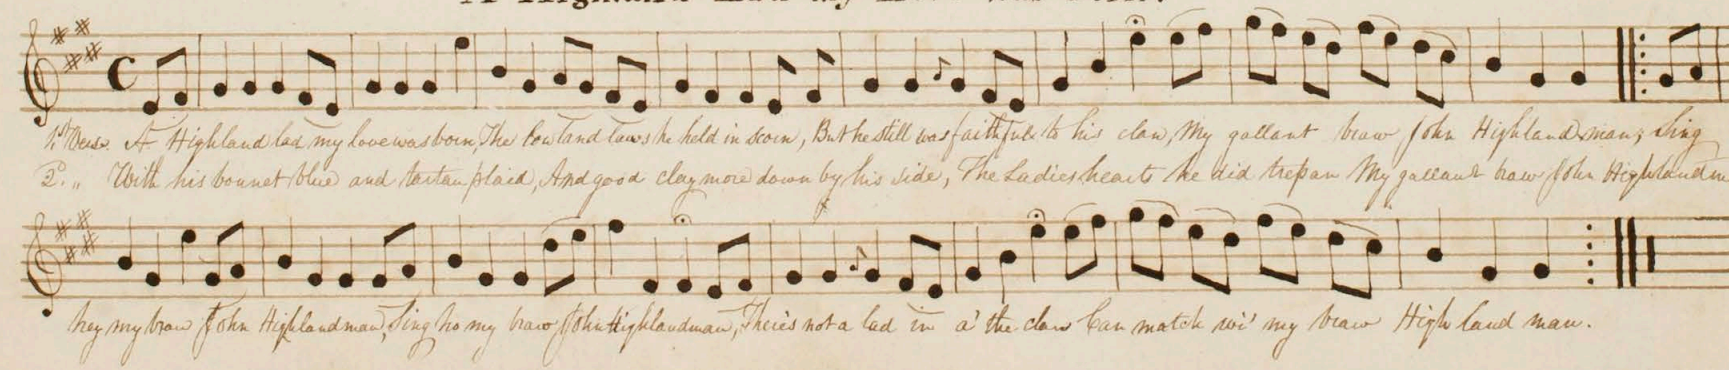 A Highland Lad my Love was born.
1st Verse A Highland lad my love was born, The lowland laws he held in scorn, But he still was faithfull to his clan, My gallant braw John Highlandman; Sing
2d „ With his bonnet blue and tartan plaid, And good claymore down by his side, The Ladies hearts he did trepan My gallant braw John Highlandm
hey my braw John Highlandman, Sing ho my braw John Highlandman, There's not a lad in a' the clan Can match wi' my braw Highland man.